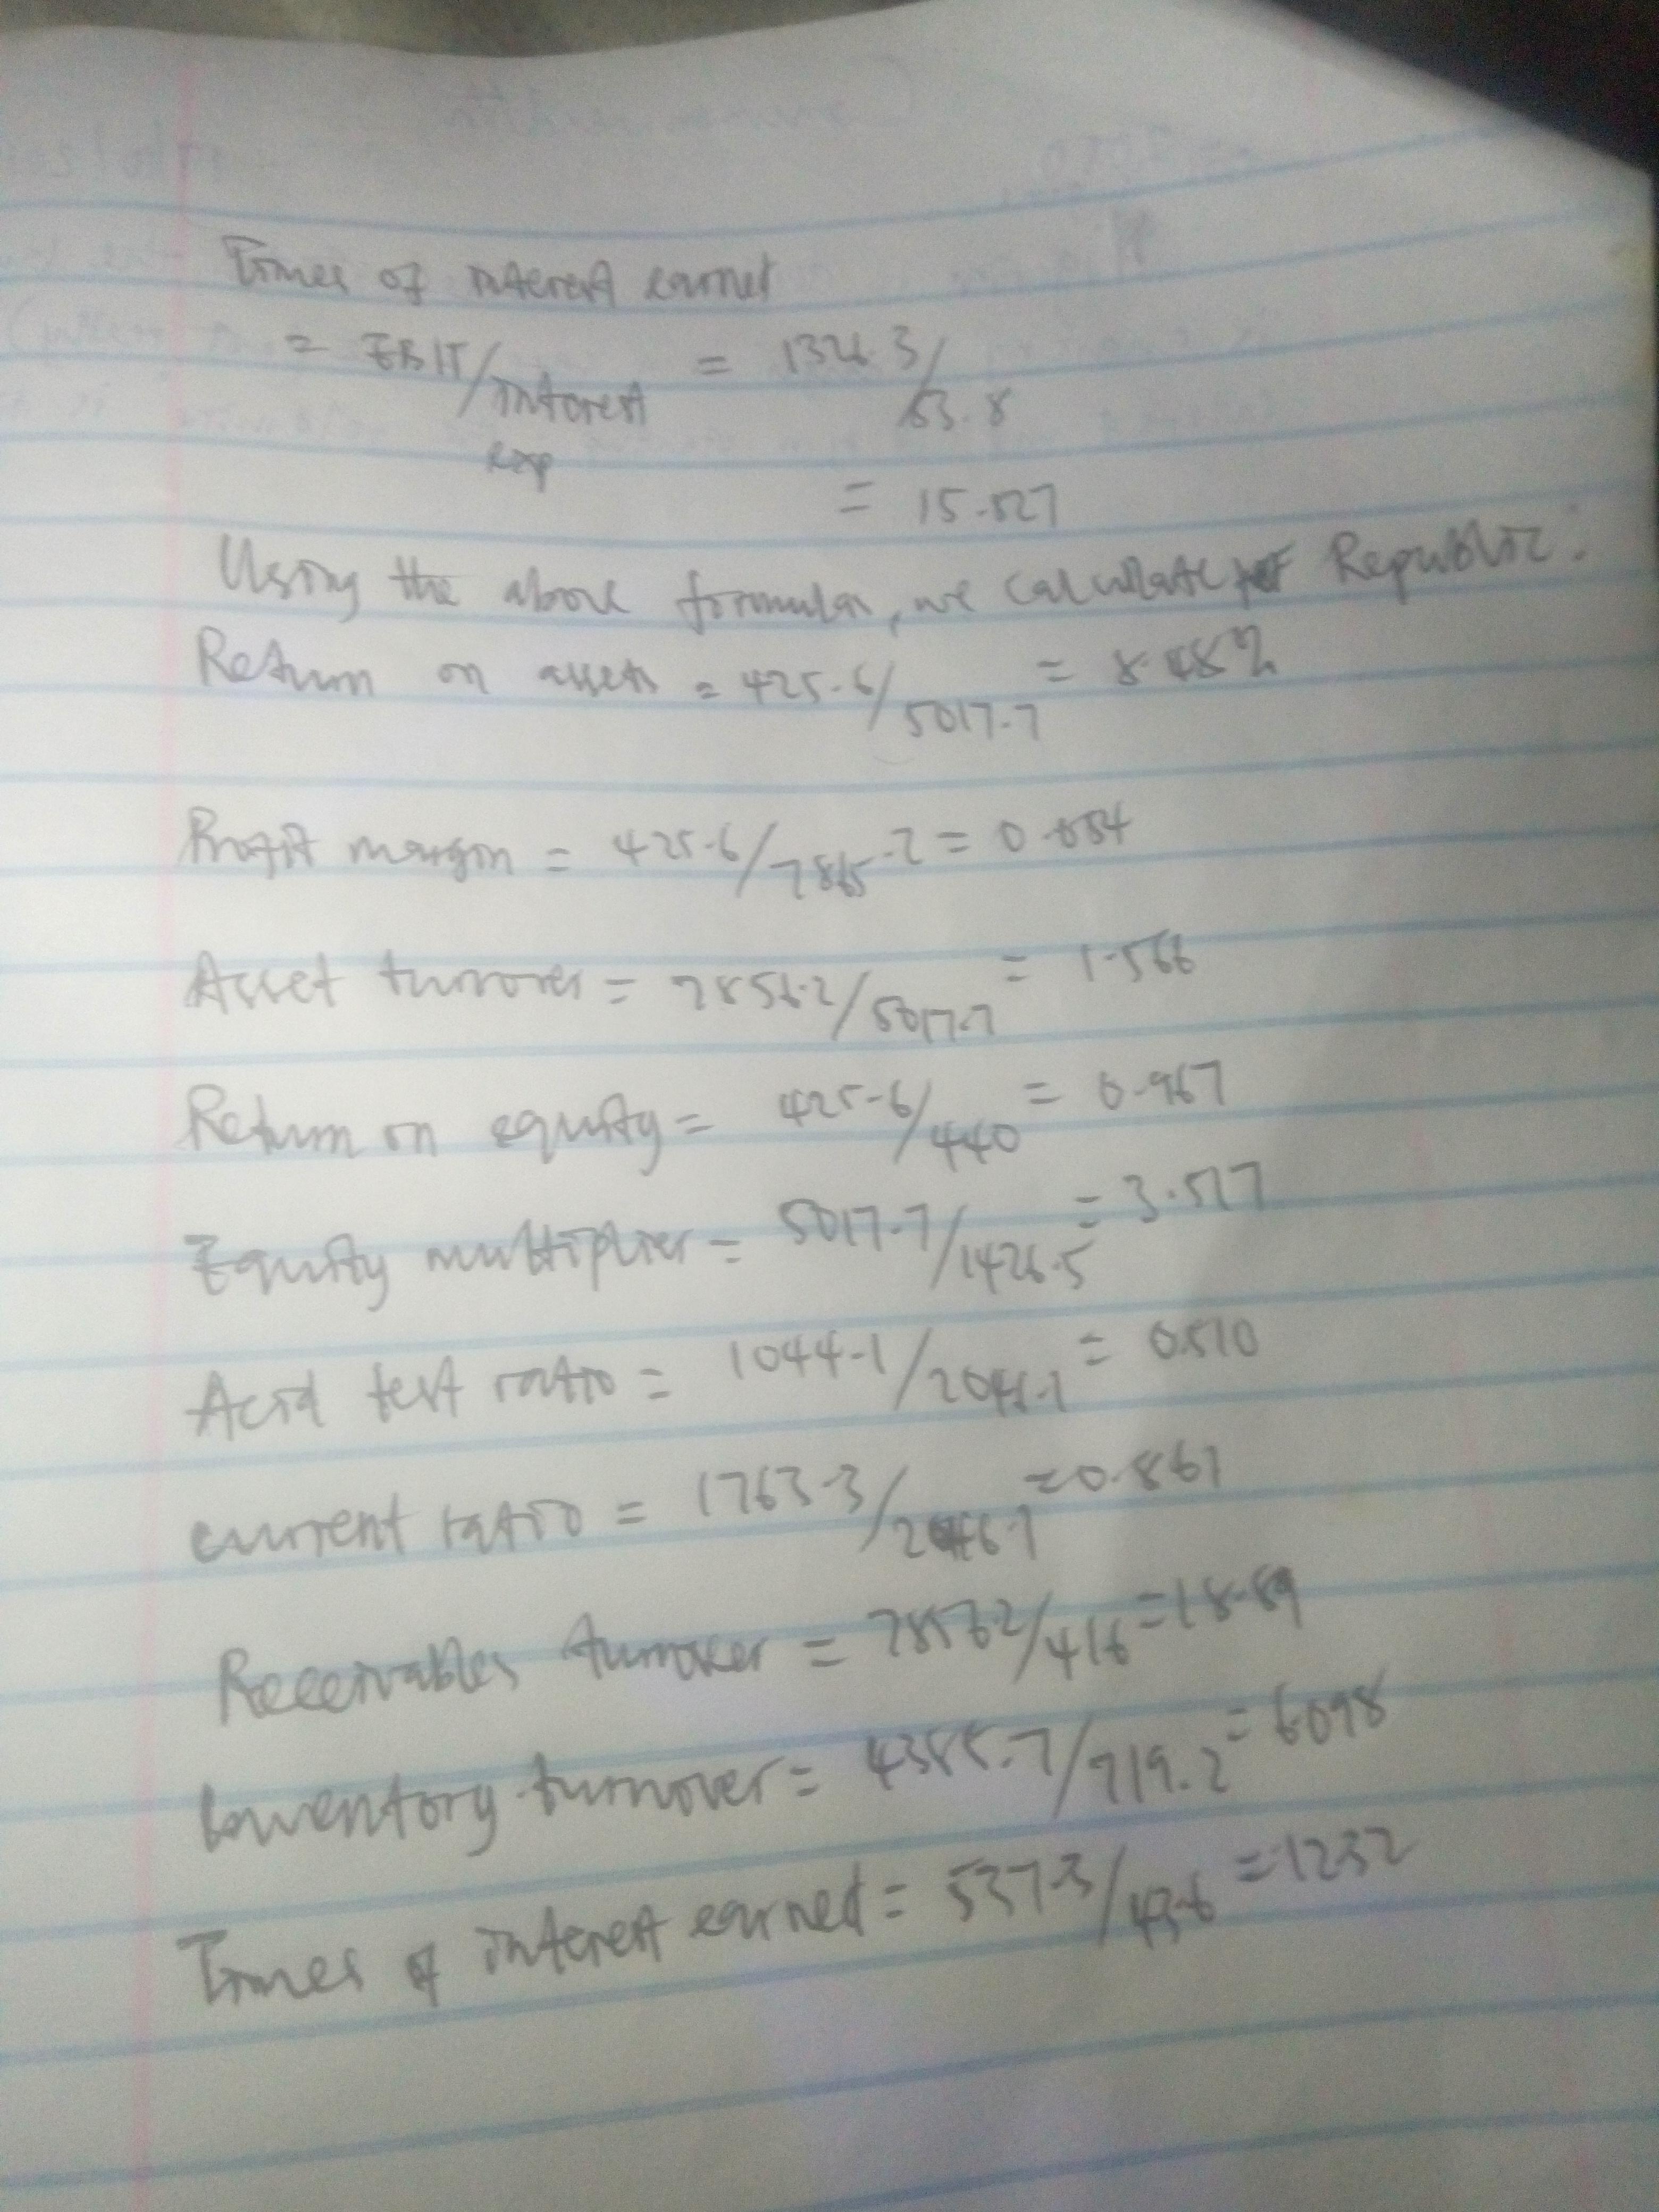 Times of interest earned
= EBIT/interest exp = 1326.3/53.8
= 15.527
Using the above formular, we calculate for Republic:
Return on assets = 425.6/5017.7 = 8.482
Profit margin = 425.6/7865.2 = 0.054
Asset turnover = 7856.2/5017.7 = 1.566
Return on equity = 425.6/440 = 0.967
Equity multiplier = 5017.7/1426.5 = 3.517
Acid test ratio = 1044.1/2046.1 = 0.510
current ratio = 1763.3/2046.1 = 0.861
Receivables turnover = 7856.2/416 = 18.89
Inventory turnover = 4385.7/719.2 = 6.098
Times of interest earned = 537.3/43.6 = 12.32